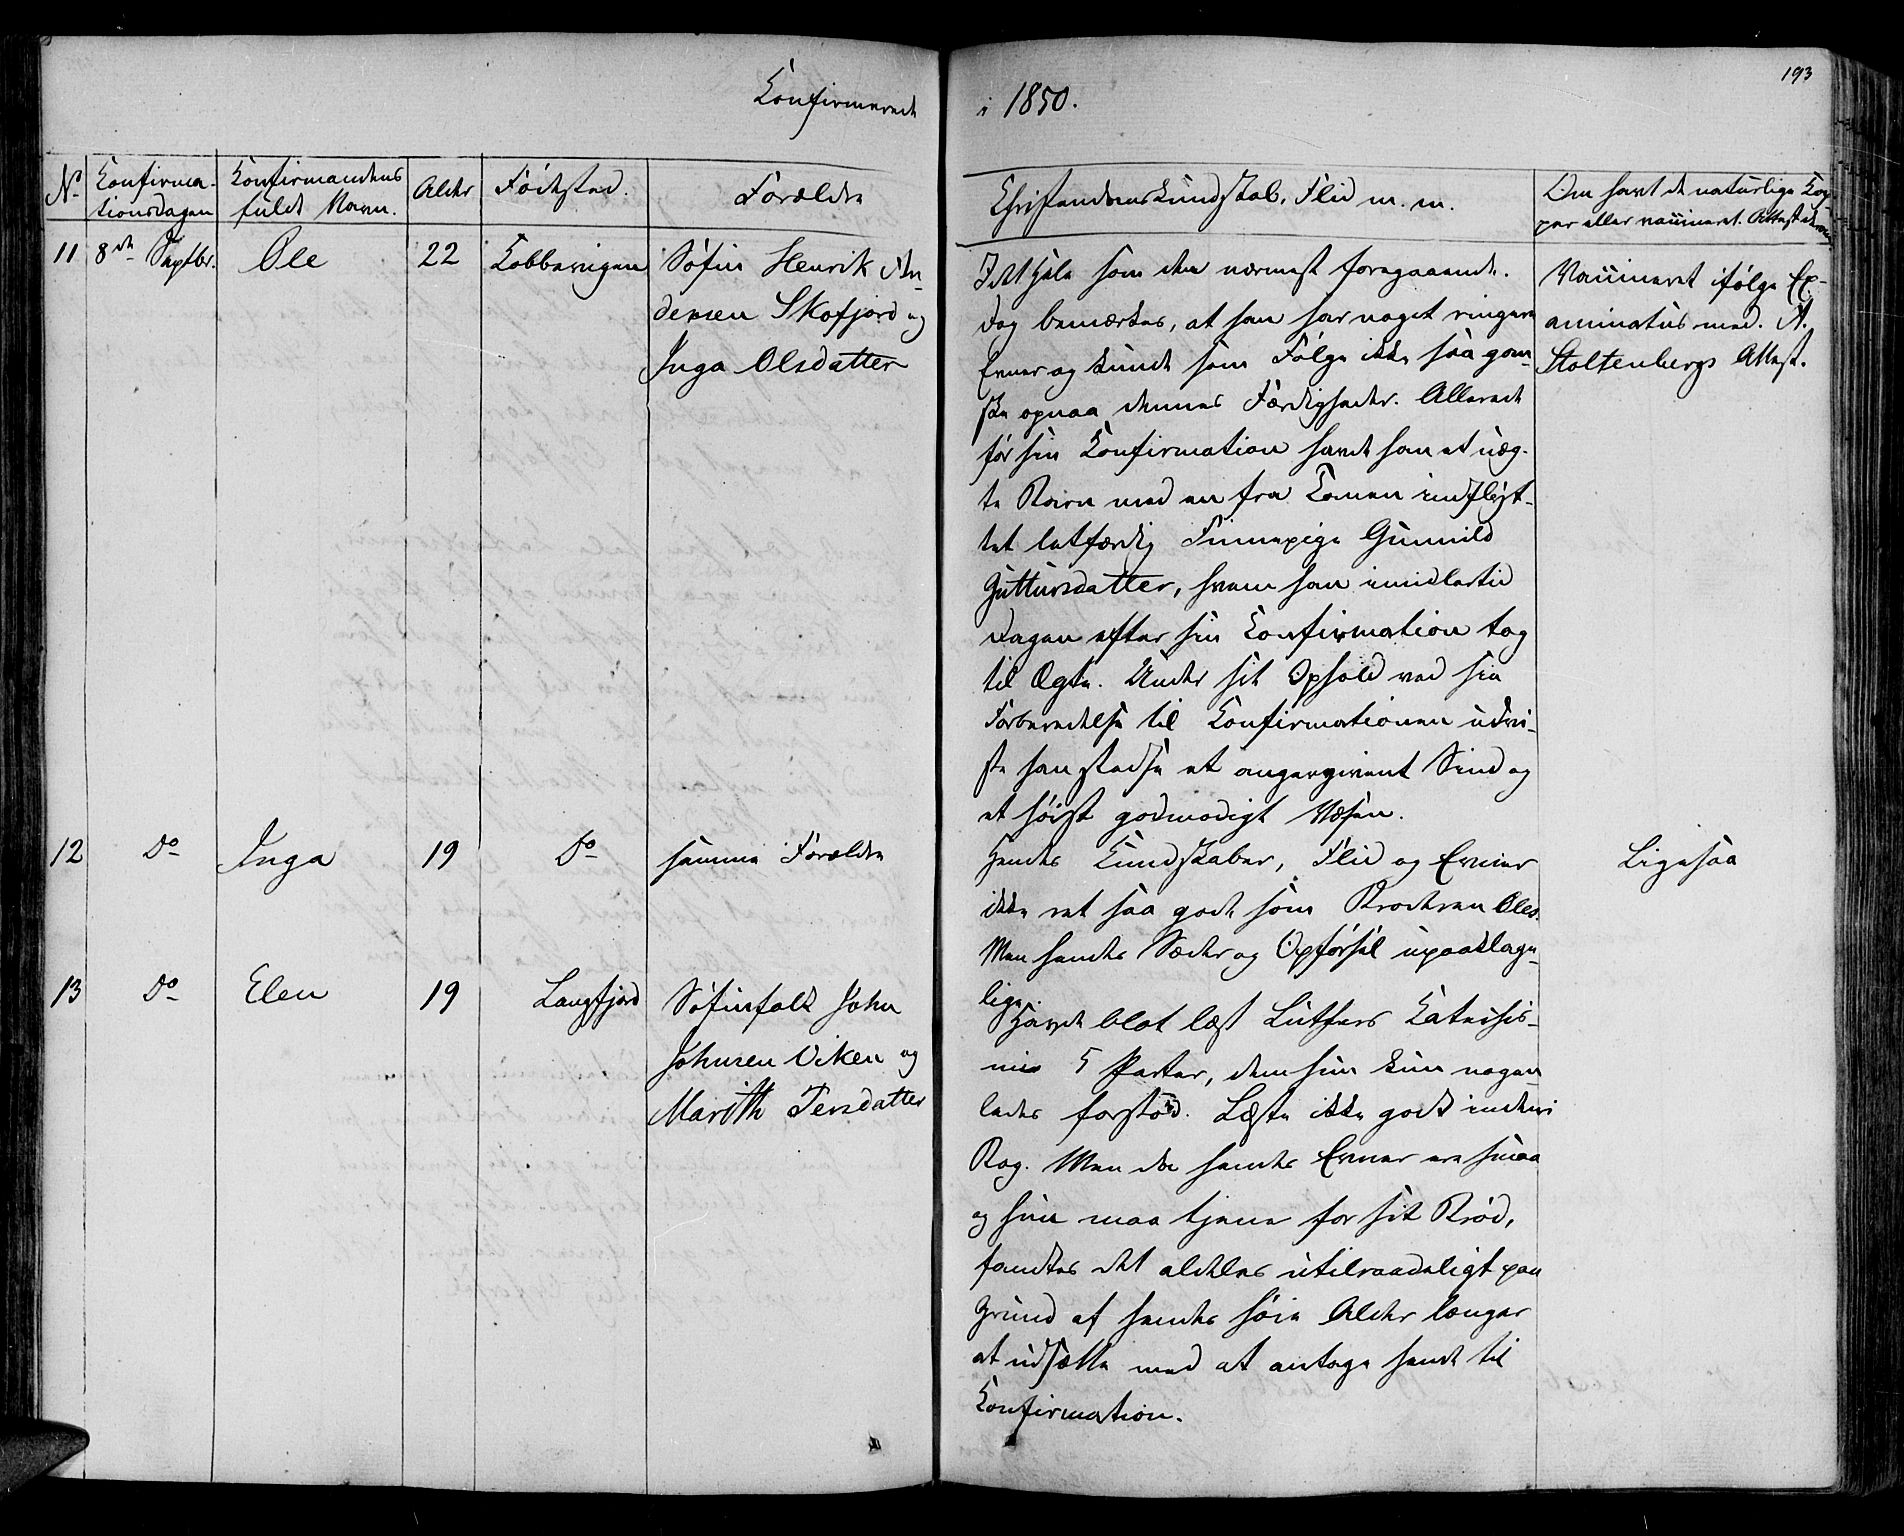 193
Konfirmerede
i 1850.
No
Konfirma-
tionsdagen
Konfirmandens
fulde Navn.
Alder
Fødested.
Forældre
Christendomskundskab, Flid m. m.
Om havt de naturlige Kop-
per eller vaccineret. Attest derom
11
8de Septbr.
Ole
22
Kobbevigen
Søfin Henrik An-
dersen Skofjord og
Inga Olsdatter
I det Hele som den nærmest foregaaende.
Dog bemærkes, at han har noget ringere
Evner og kunde som Følge ikke saa gan-
ske opnaa dennes Færdigheder. Allerede
før sin Konfirmation havde han et uæg-
te Barn med en fra Tanen indflyt-
tet letfærdig Finnepige Gunnild
Guttursdatter, hvem han imidlertid
Dagen efter sin Konfirmation tog
til Ægte. Under sit Ophold ved sin
Forberedelse til Konfirmationen udvi-
ste han stedse et angergivent Sind og
et høist godmodigt Væsen.
Vaccineret ifølge Ex-
aminatus med. A.
Stoltenbergs Attest.
12
Do
Inga
19
Do
samme Forældre
Hendes Kundskaber, Flid og Evner
ikke ret saa gode som Broderen Oles.
Men hendes Sæder og Opførsel upaaklage-
lige.
Ligesaa
13
Do
Elen
19
Langfjord
Søfinfolk John
Johnsen Viken og
Marith Persdatter
Havde blot læst Luthers Katechis-
mi 5 Parter, dem hun kun nogen-
ledes forstod. Læste ikke godt inden i
Bog. Men da hendes Evner ere smaa
og hun maa tjene for sit Brød,
fandtes det aldeles utilraadeligt paa
Grund af hendes høie Alder længer
at udsætte med at antage hende til
Konfirmation.